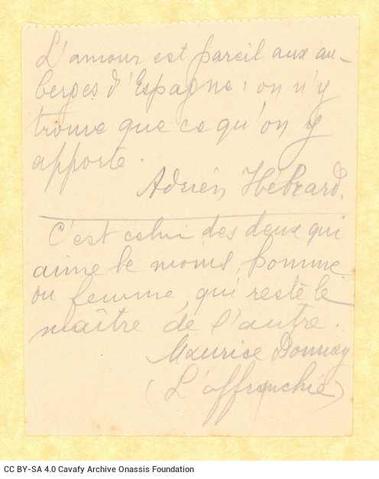 L'amour est pareil aux au-
berges d'Espagne : on n'y
trouve que ce qu'on y
apporte.
Adrien Hébrard.
C'est celui des deux qui
aime le moins, homme
ou femme, qui reste le
maître de l'autre.
Maurice Donnay
(L'affranchie)
CC BY-SA 4.0 Cavafy Archive Onassis Foundation